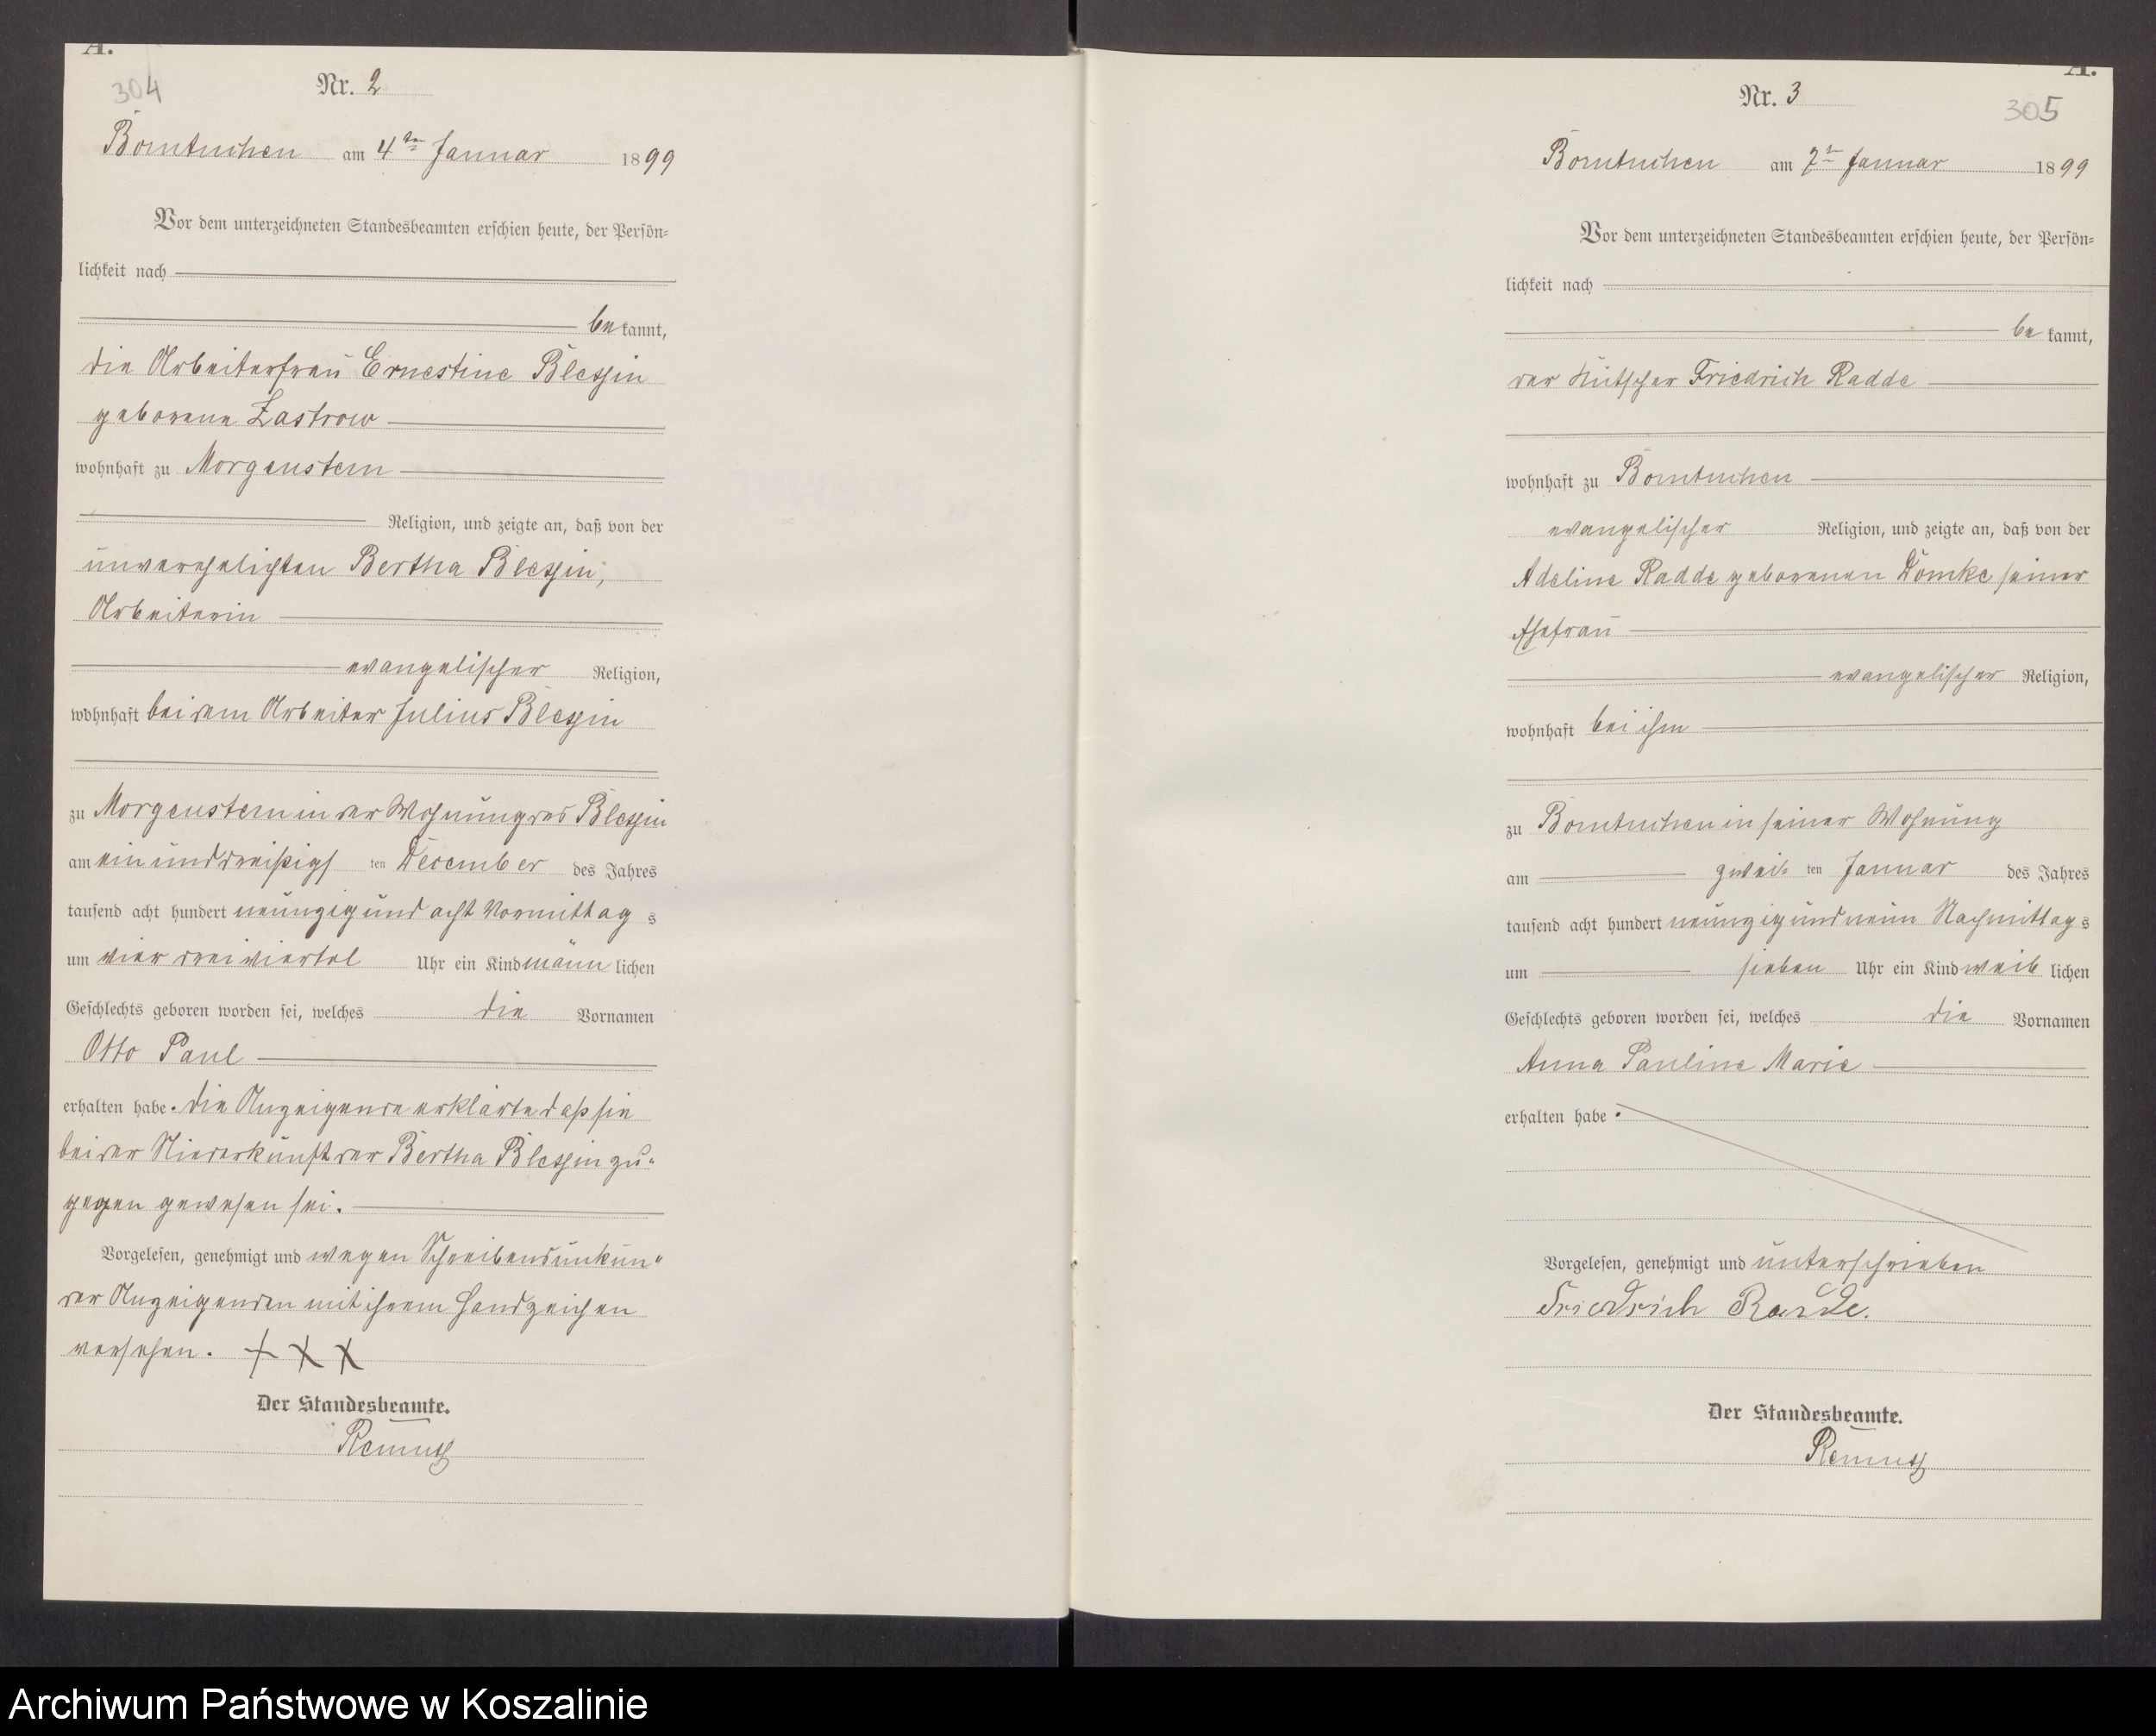 A.
304
Nr. 2
Borntuchen am 4ten Januar 1899
Vor dem unterzeichneten Standesbeamten erschien heute, der Persön-
lichkeit nach
be kannt,
die Arbeiterfrau Ernestine Blessin
geborene Zastrow
wohnhaft zu Morgenstern
Religion, und zeigte an, daß von der
unverehelichten Bertha Blessin,
Arbeiterin
evangelischer Religion,
wohnhaft bei dem Arbeiter Julius Blessin
zu Morgenstern in der Wohnung des Blessin
am ein und dreißigs ten December des Jahres
tausend acht hundert neunzig und acht Vormittag s
um vier dreiviertel Uhr ein Kind männ lichen
Geschlechts geboren worden sei, welches die Vornamen
Otto Paul
erhalten habe. Die Anzeigende erklärte daß sie
bei der Niederkunft der Bertha Blessin zu-
gegen gewesen sei.
Vorgelesen, genehmigt und wegen Schreibensunkun-
der Anzeigenden mit ihrem Handzeichen
versehen. + x x
Der Standesbeamte.
A.
305
Nr. 3
Borntuchen am 7ten Januar 1899
Vor dem unterzeichneten Standesbeamten erschien heute, der Persön-
lichkeit nach
be kannt,
der Kutscher Friedrich Radde
wohnhaft zu Borntuchen
evangelischer Religion, und zeigte an, daß von der
Adeline Radde geborenen Dömke seiner
Ehefrau
evangelischer Religion,
wohnhaft bei ihm
zu Borntuchen in seiner Wohnung
am zwei- ten Januar des Jahres
tausend acht hundert neunzig und neun Nachmittag s
um sieben Uhr ein Kind weib lichen
Geschlechts geboren worden sei, welches die Vornamen
Anna Pauline Marie
erhalten habe.
Vorgelesen, genehmigt und unterschrieben
Friedrich Radde.
Der Standesbeamte.
Archiwum Państwowe w Koszalinie